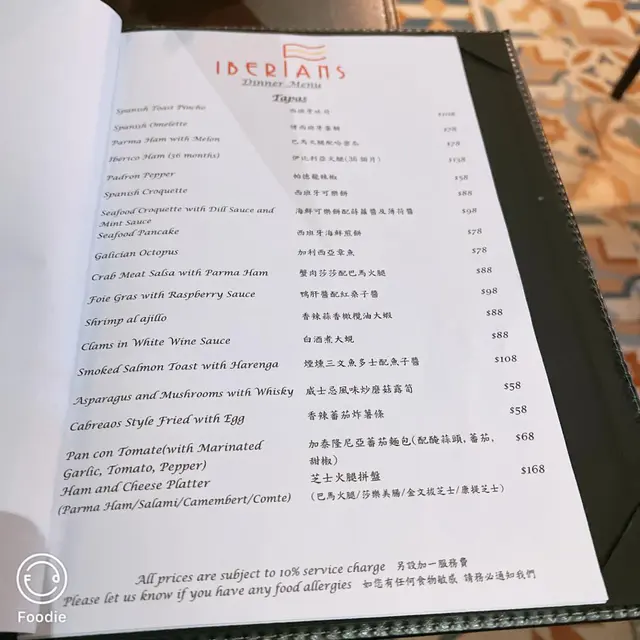 IBERIANS
Dinner Menu
Tapas
Spanish Toast Pincho 西班牙吐司 $108
Spanish Omelette 傳西班牙蛋餅 $78
Parma Ham with Melon 巴馬火腿配哈密瓜 $78
Iberico Ham (36 months) 伊比利亞火腿(36個月) $138
Padron Pepper 帕德龍辣椒 $58
Spanish Croquette 西班牙可樂餅 $88
Seafood Croquette with Dill Sauce and 海鮮可樂餅配蒔蘿醬及薄荷醬 $98
Mint Sauce
Seafood Pancake 西班牙海鮮煎餅 $78
Galician Octopus 加利西亞章魚 $78
Crab Meat Salsa with Parma Ham 蟹肉莎莎配巴馬火腿 $88
Foie Gras with Raspberry Sauce 鴨肝醬配紅桑子醬 $98
Shrimp al ajillo 香辣蒜香橄欖油大蝦 $88
Clams in White Wine Sauce 白酒煮大蜆 $88
Smoked Salmon Toast with Harenga 煙燻三文魚多士配魚子醬 $108
Asparagus and Mushrooms with Whisky 威士忌風味炒磨菇露筍 $58
Cabreaos Style Fried with Egg 香辣蕃茄炸薯條 $58
Pan con Tomate(with Marinated 加泰隆尼亞蕃茄麵包(配醃蒜頭,蕃茄, $68
Garlic, Tomato, Pepper) 甜椒)
Ham and Cheese Platter 芝士火腿拼盤 $168
(Parma Ham/Salami/Camembert/Comte) (巴馬火腿/莎樂美腸/金文拔芝士/康提芝士)
All prices are subject to 10% service charge 另設加一服務費
Please let us know if you have any food allergies 如您有任何食物敏感 請務必通知我們
Foodie